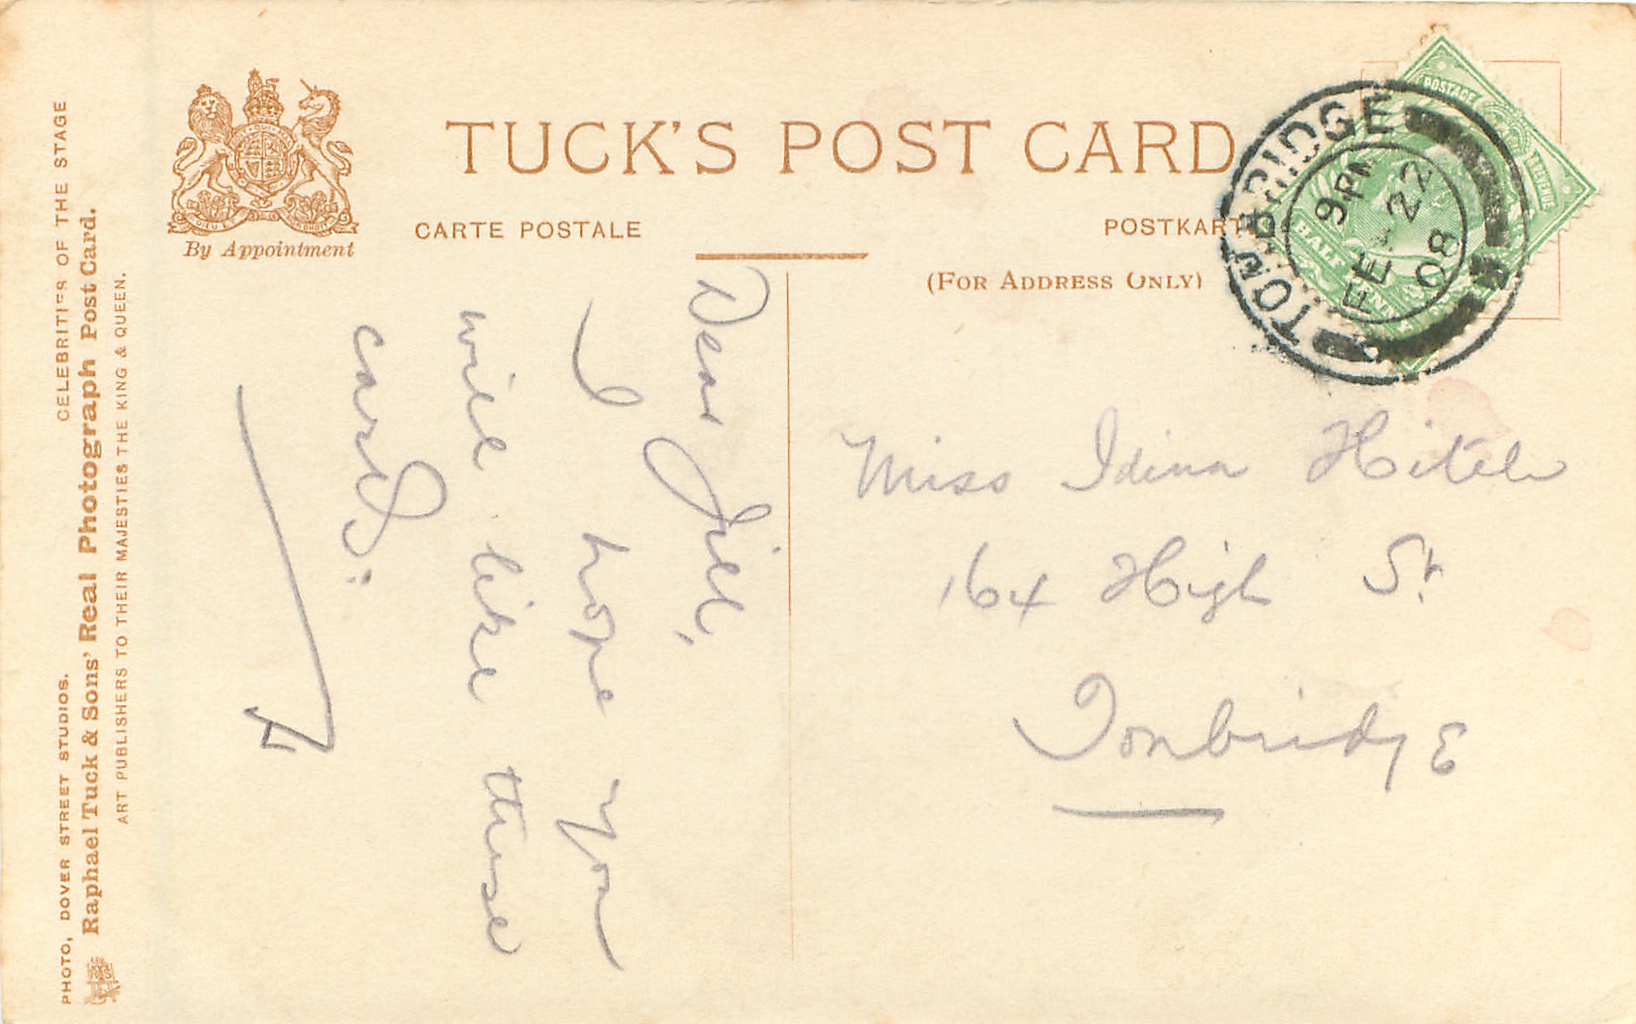 TUCK'S POST CARD
CARTE POSTALE
POSTKART
(FOR ADDRESS ONLY)
By Appointment
CELEBRITIES OF THE STAGE
PHOTO, DOVER STREET STUDIOS.
Raphael Tuck & Sons' Real Photograph Post Card.
ART PUBLISHERS TO THEIR MAJESTIES THE KING & QUEEN.
TONBRIDGE
9 PM
FE 22
08
POSTAGE
HALF PENNY
Dear Jill,
I hope you
will like these
cards:
Miss Idina
164 High St.
Tonbridge